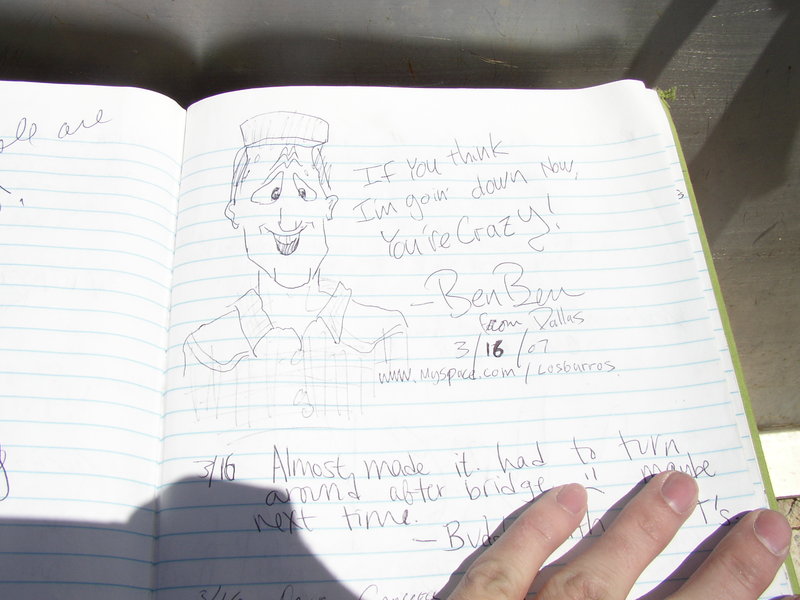 are
If You think
I'm goin' down Now,
You're Crazy!
- Ben Ben
from Dallas
3/16/07
www.myspace.com/Losburros
3/16 Almost made it. had to turn
around after bridge :( maybe
next time.
3/16